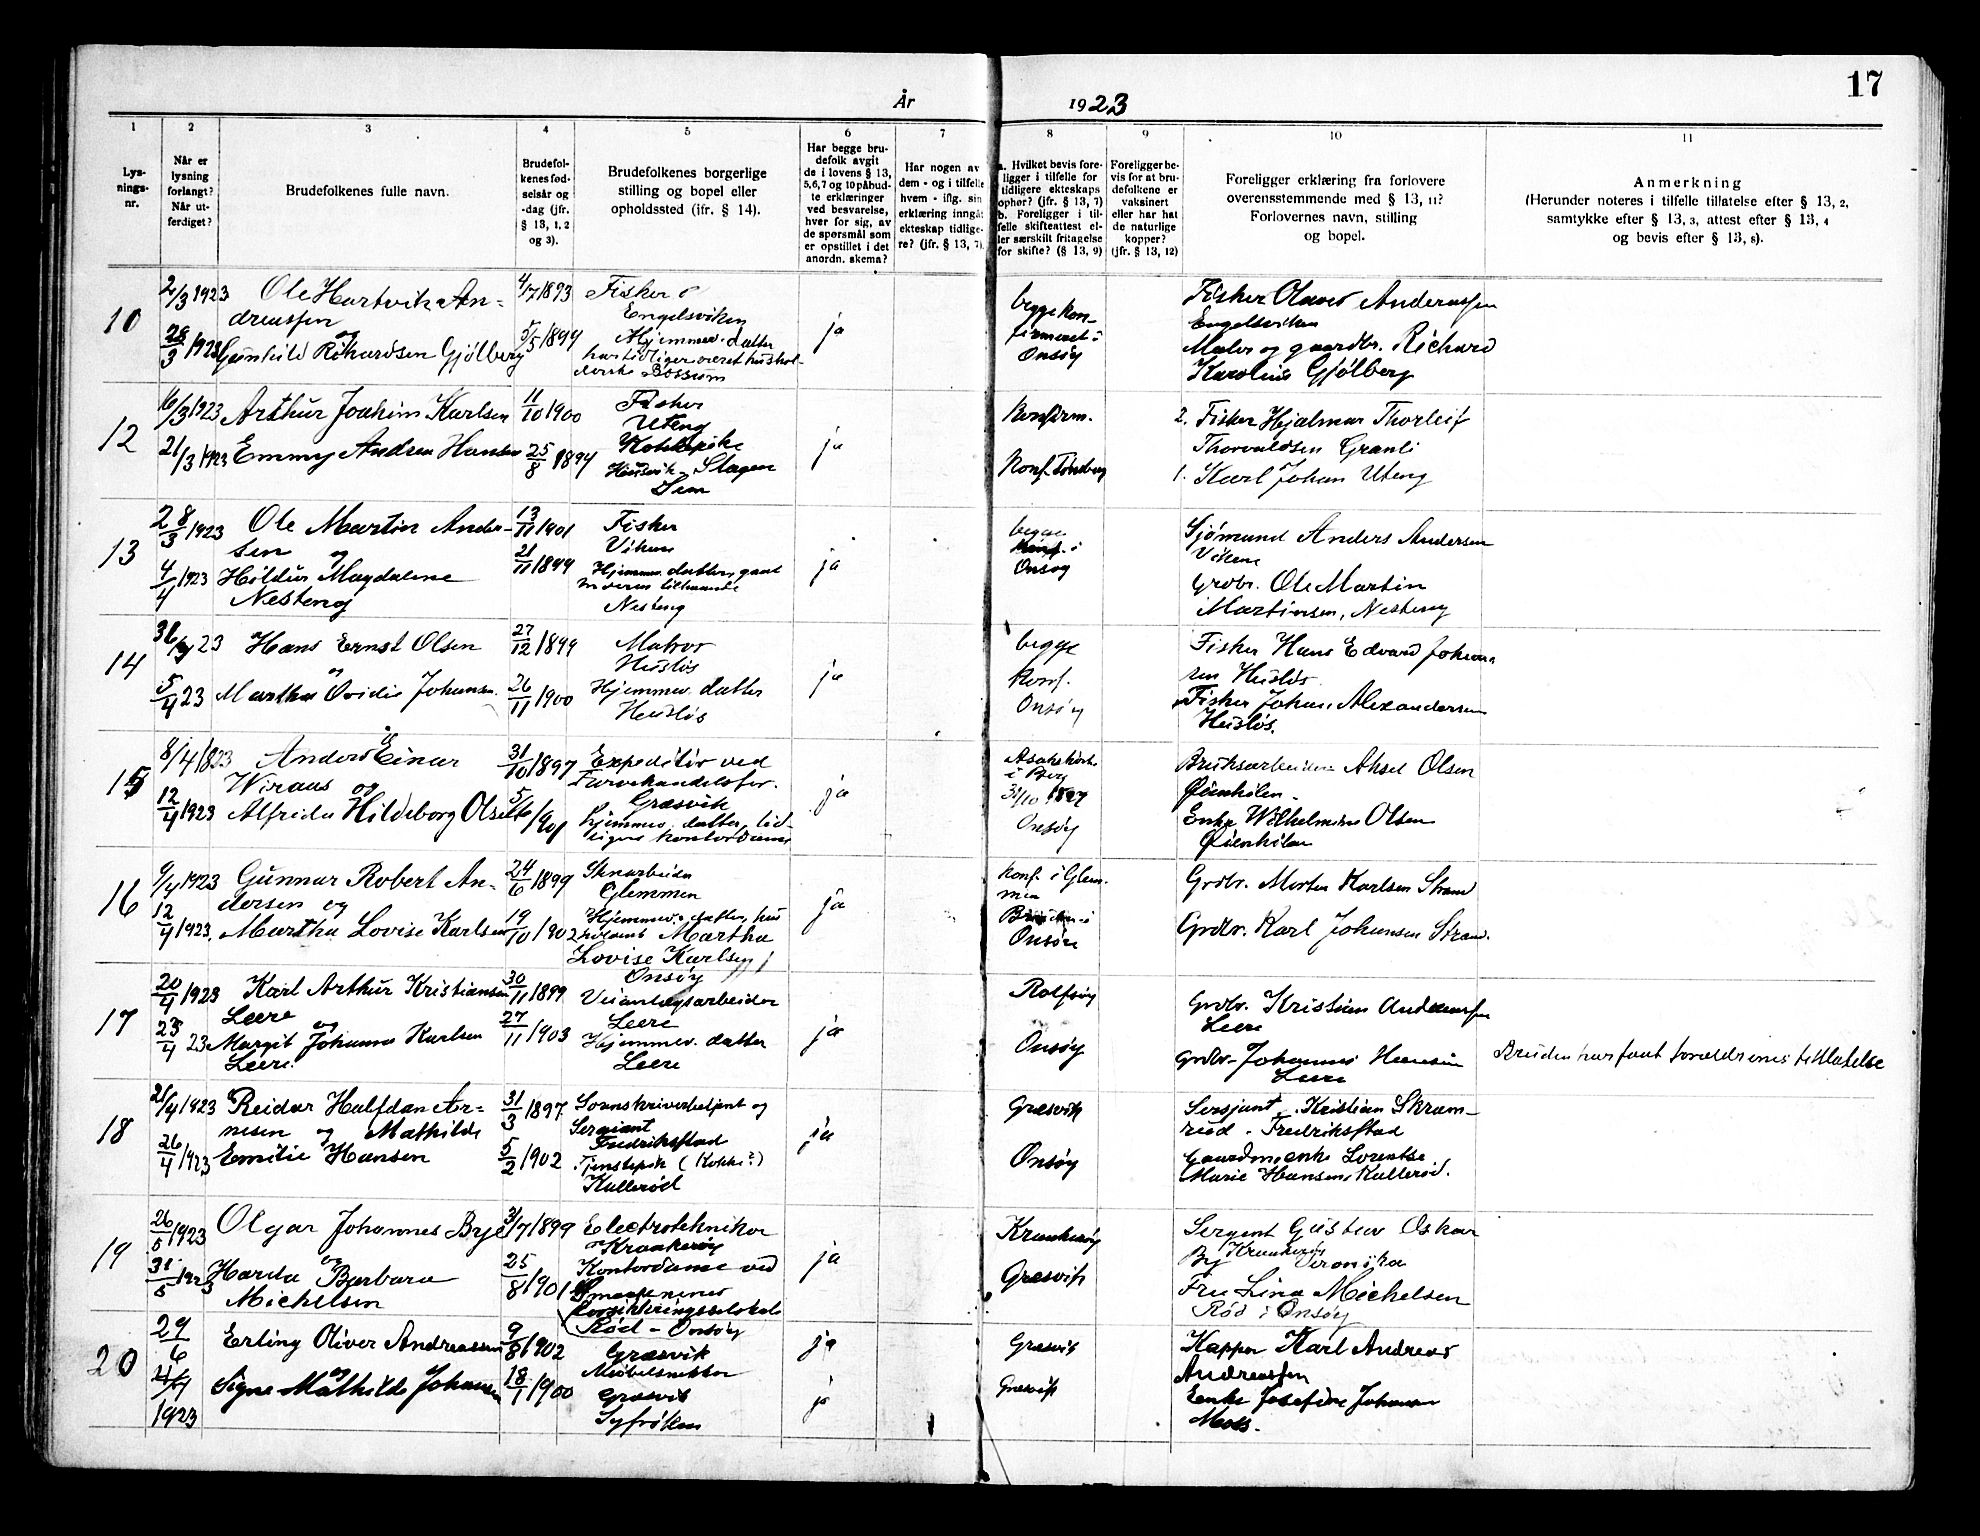 17
År 1923
1 2 3 4 5 6 7 8 9 10 11
Lys-
nings-
nr.
Når er
lysning
forlangt?
Når ut-
ferdiget?
Brudefolkenes fulle navn.
Brudefol-
kenes fød-
selsår og
-dag (jfr.
§ 13, 1, 2
og 3).
Brudefolkenes borgerlige
stilling og bopel eller
opholdssted (ifr. § 14).
Har begge bru-
defolk avgit
de i lovens § 13,
5,6,7 og 10 påbud-
te erklæringer
ved besvarelse,
hver for sig, av
de spørsmål som
er opstillet i det
anordn. skema?
Har nogen av
dem - og i tilfelle
hvem - iflg. sin
erklæring inngåt
ekteskap tidlige-
re? (jfr. § 13, 7)
a. Hvilket bevis fore-
ligger i tilfelle for
tidligere ekteskaps
ophør? (jfr. § 13, 7)
b. Foreligger i til-
felle skifteattest el-
ler særskilt fritagelse
for skifte? (§ 13, 9)
Foreligger be-
vis for at bru-
defolkene er
vaksinert
eller har hat
de naturlige
kopper?
(jfr. § 13, 12)
Foreligger erklæring fra forlovere
overensstemmende med § 13, 11?
Forlovernes navn, stilling
og bopel.
Anmerkning
(Herunder noteres i tilfelle tillatelse efter § 13, 2,
samtykke efter § 13, 3, attest efter § 13, 4
og bevis efter § 13, 8).
10
2/3 1923
28/3 1923
Ole Hartvik An-
dreassen
og
Gunhild Rikardsen Gjølberg
4/7 1893
5/5 1899
Fisker
Engelsviken
Hjemmev. datter
har tidligere været hushol-
derske Bossum
ja
begge kon-
firmeret i
Onsøy
Fisker Olaves Andreassen
Engelsviken
Maler og gaardbr. Richard
Karolius Gjølberg
12
16/3 1923
21/3 1923
Arthur Joachim Karlsen
Emmy Andrea Hansen
11/10 1900
25/8 1894
Fisker
Uteng
Kokkepike
Husvik - Slagen
Sem
ja
Konfirm.
Konf. Tønsberg
2. Fisker Hjalmar Thorleif
Thorvaldsen Granli
1. Karl Johan Uteng
13
28/3 1923
4/4 1923
Ole Martin Ander-
sen og
Hildur Magdalene
Nesteng
13/11 1901
21/11 1899
Fisker
Vikane
Hjemmev. datter, gaat
moderen tilhaande
Nesteng
ja
begge
konf. i
Onsøy
Sjømand Anders Andersen
Vikene
Grdbr. Ole Martin
Martinsen, Nesteng
14
5/4 23
Hans Ernst Olsen
og
Martha Ovidie Johansen
27/12 1899
26/11 1900
Matros
Husløs
Hjemmev. datter
Husløs
ja
begge
Konf.
Onsøy
Fisker Hans Edvard Johan-
sen Husløs
Fisker Johan Alexandersen
Husløs.
15
8/4 1923
12/4 1923
Anders Einar
Wiraas og
Alfrida Hildeborg Olsen
31/10 1897
Expeditør ved
Farvehandelsfor.
Græsvik
hjemmev. datter, tid-
ligere kontordame
ja
i Berg
31/10 1897
Onsøy
Bruksarbeider Aksel Olsen
Øienkilen
Enke Wilhelmine Olsen
Øienkilen
16
9/4 1923
12/4 1923.
Gunnar Robert An-
dersen og
Martha Lovise Karlsen
24/6 1899
19/10 1902
Glemmen
Hjemmev. datter, hus
Martha
Lovise Karlsen
Onsøy
ja
Konf. i Glem-
men
Bruden i
Onsøy
Grdbr. Morten Karlsen Strand
Grdbr. Karl Johansen Strand.
17
20/4 1923
23/4 23
Karl Arthur Kristiansen
Leere
og
Margit Johanne Karlsen
Leere.
30/11 1899
27/11 1903
Veianlægsarbeider
Leere
Hjemmev. datter
Leere
ja
Rolfsøy
Onsøy
Grdbr. Kristian Andreassen
Leere
Grdbr. Johannes Hansen
Leere
Bruden har faat forældrenes tillatelse
18
25/4 1923
26/4 1923
Reidar Halfdan Ar-
nesen og Mathilde
Emilie Hansen
31/3 1897.
5/2 1902
Sorenskriverbetjent og
Sergiant
Fredrikstad
Tjenstepik (Kokke?)
Kallerød
ja
Græsvik
Onsøy
Sersjant Kristian Skram-
rud - Fredrikstad
Gaardm.enke Lorentse
Marie Hansen, Kallerød.
19
26/5 1923
31/5 1923
Olgar Johannes Bye
og
Harda Barbara
Michelsen
31/7 1899
25/8 1901
Electrotekniker
Kraakerøy
Kontordame ved
Smaabønenes
Rød - Onsøy
ja
Kraakerøy
Græsvik
Sergent Gustav Oskar
By Kraakerøy Veronika
Fru Lina Michelsen
Rød i Onsøy
20
29/6
1923
Erling Oliver Andreassen
og
Signe Mathilde Johansen
9/8 1902
18/1 1900
Græsvik
Møbelsnekker
Græsvik
Syfrøken
ja
ja
Græsvik
Græsvik
Kapper Karl Andreas
Andreassen
Enke Josefine Johansen
Moss.